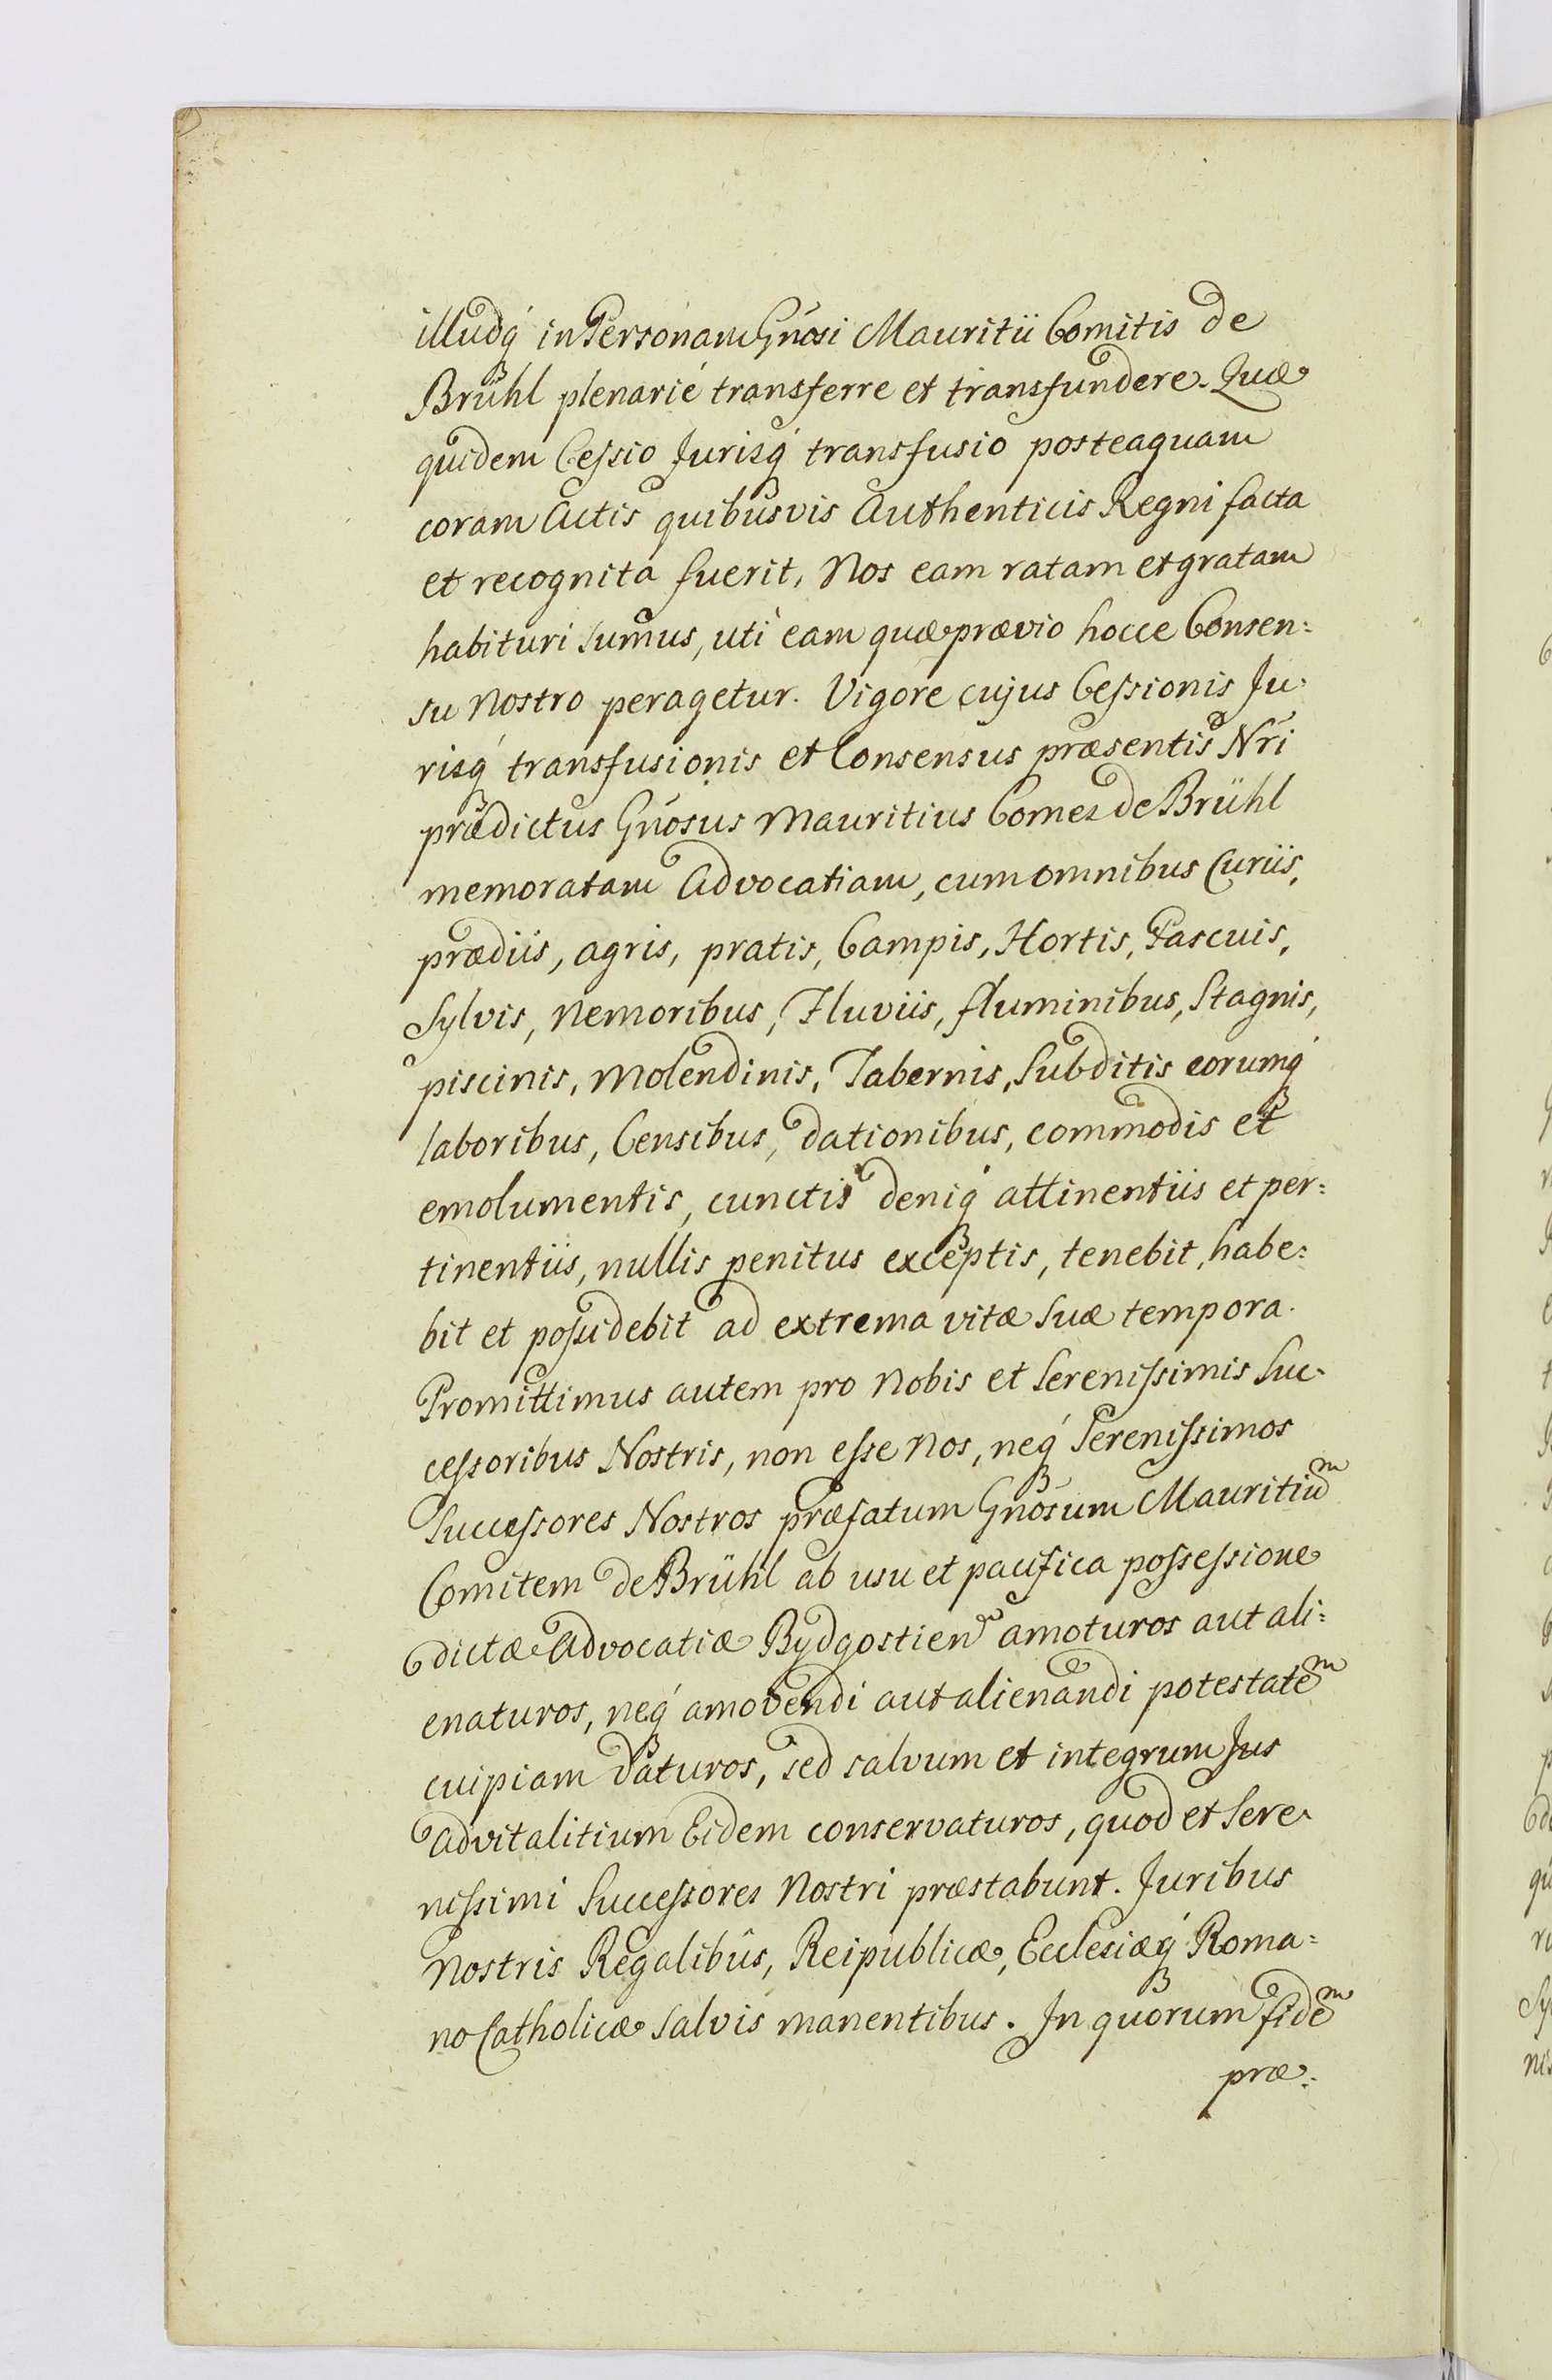 illudq́ in Personam Gn̄osi Mauritii Comitis de
Brühl plenarié transferre et transfundere. Quæ
quidem Cessio Jurisq́ transfusio posteaquam
coram Actis quibusvis Authenticis Regni facta
et recognita fuerit, Nos eam ratam et gratam
habituri sumus, uti eam quæ prævio hocce Consen:
su Nostro peragetur. Vigore cujus Cessionis Ju:
risq́ transfusionis et Consensus præsentis Nr̄i
prædictus Gn̄osus Mauritius Comes de Brühl
memoratam Advocatiam, cum omnibus Curiis,
prædiis, agris, pratis, Campis, Hortis, Pascuis,
Sylvis, Nemoribus, Fluviis, fluminibus, Stagnis,
piscinis, Molendinis, Tabernis, Subditis eorumq́
laboribus, Censibus, dationibus, commodis et
emolumentis, cunctis deniq́ attinentiis et per:
tinentiis, nullis penitus exceptis, tenebit, habe:
bit et possidebit ad extrema vitæ suæ tempora.
Promittimus autem pro Nobis et Serenissimis Suc:
cessoribus Nostris, non esse Nos, neq́ Serenissimos
Successores Nostros præfatum Gn̄osum Mauritiuᵐ
Comitem de Brühl ab usu et pacifica possessione
dictæ Advocatiæ Bydgostien̄ amoturos aut ali:
enaturos, neq́ amovendi aut alienandi potestateᵐ
cuipiam daturos, sed salvum et integrum Jus
advitalitium Eidem conservaturos, quod et Sere:
nissimi Successores Nostri præstabunt. Juribus
Nostris Regalibus, Reipublicæ, Ecclesiæq́ Roma:
no Catholicæ salvis manentibus. In quorum fideᵐ
præ: